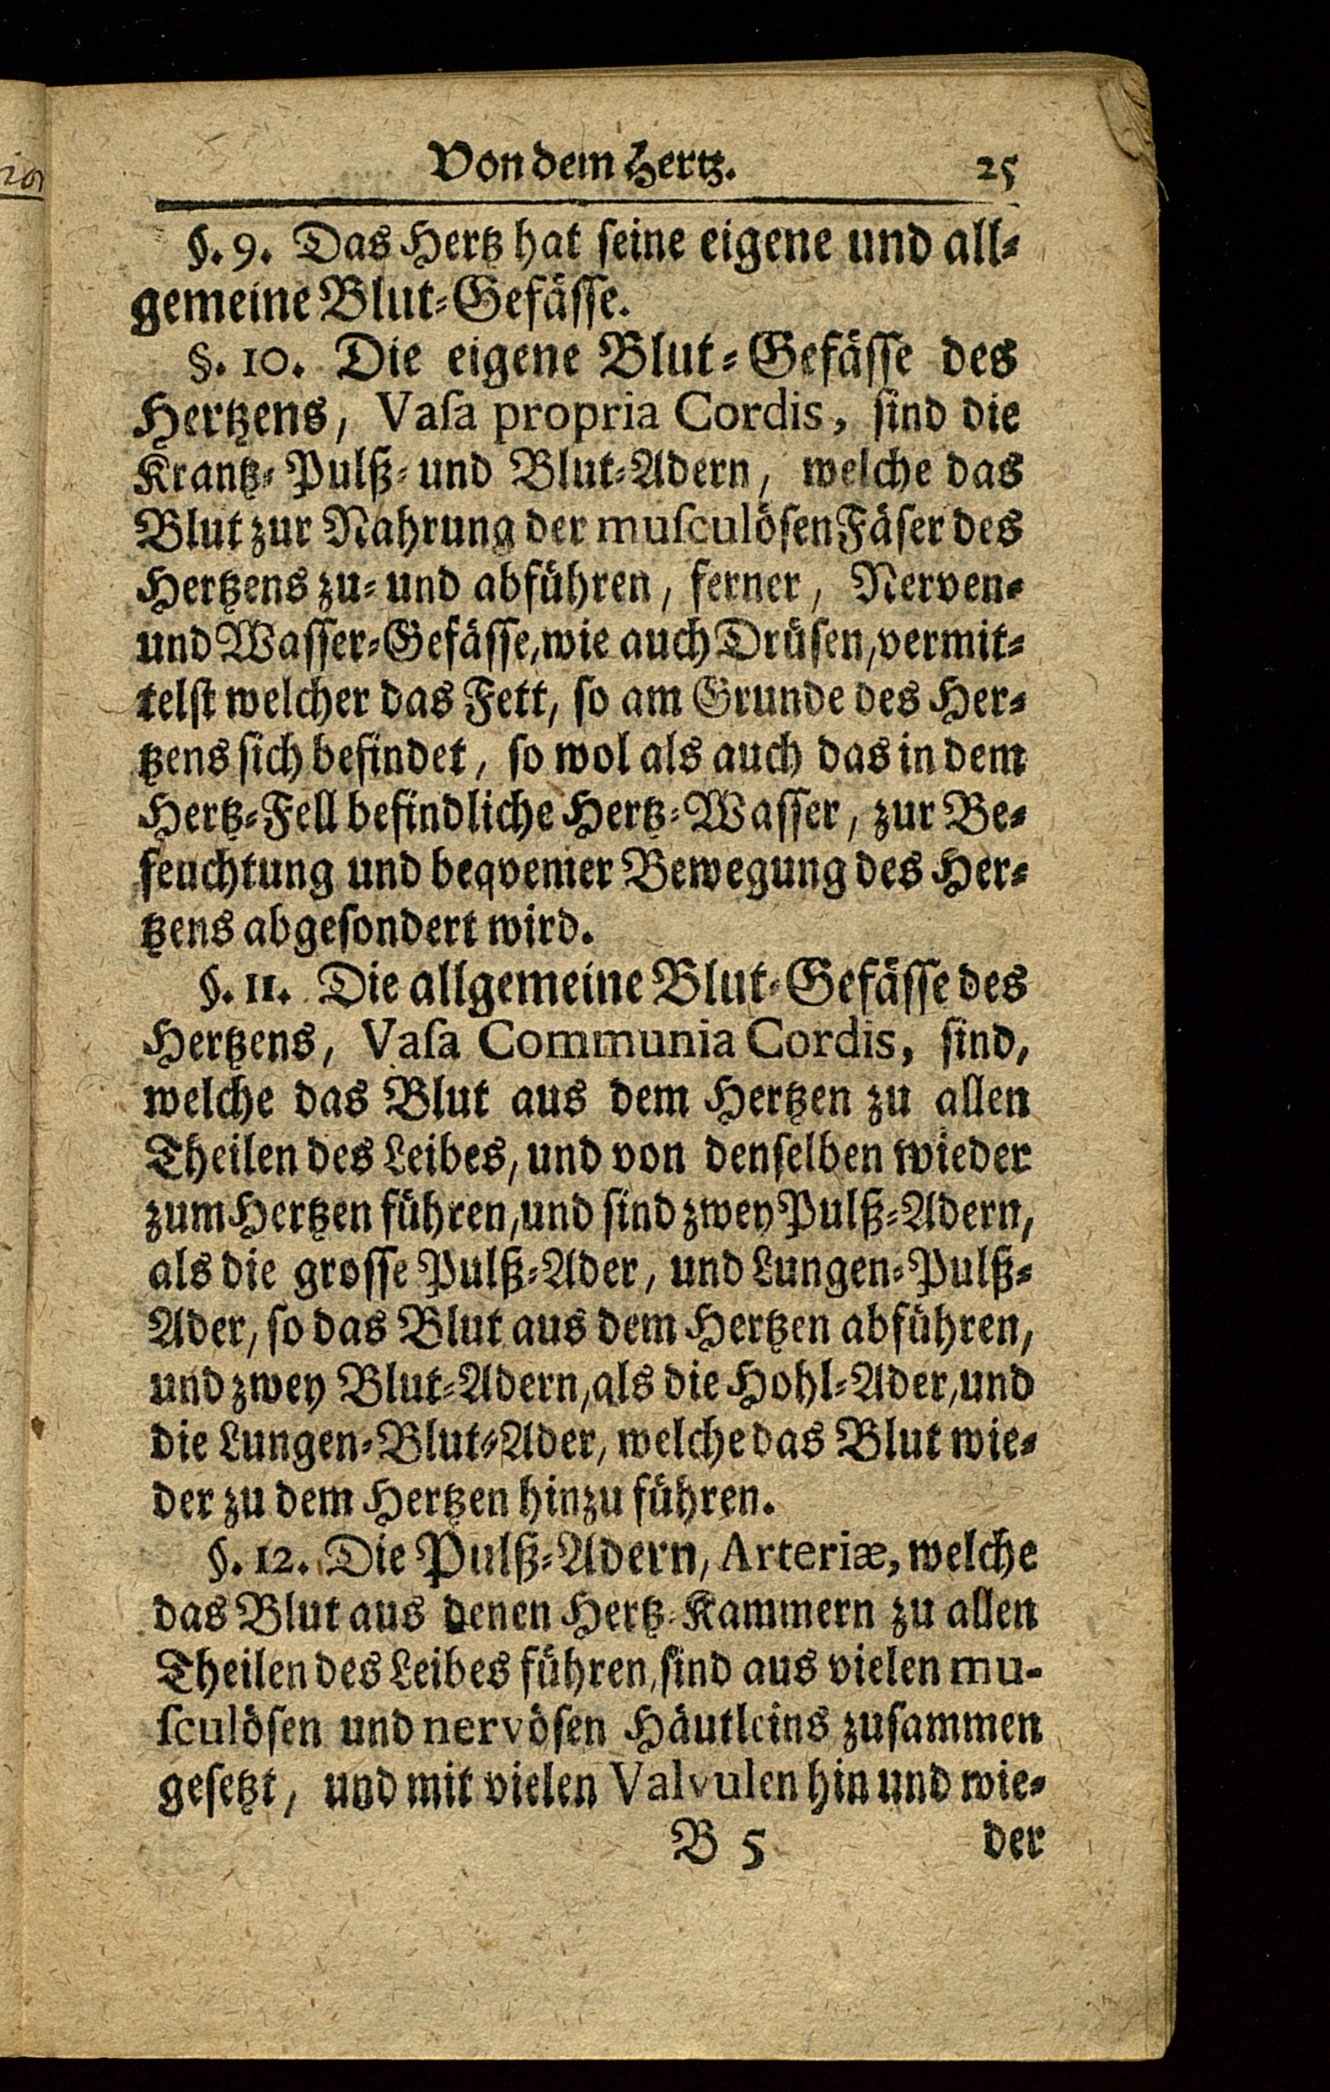 Von dem Hertz. 25
§. 9. Das Hertz hat seine eigene und all-
gemeine Blut-Gefässe.
§. 10. Die eigene Blut-Gefässe des
Hertzens, Vasa propria Cordis, sind die
Krantz-Pulß- und Blut-Adern, welche das
Blut zur Nahrung der musculösen Fäser des
Hertzens zu- und abführen, ferner, Nerven-
und Wasser-Gefässe, wie auch Drüsen, vermit-
telst welcher das Fett, so am Grunde des Her-
tzens sich befindet, so wol als auch das in dem
Hertz-Fell befindliche Hertz-Wasser, zur Be-
feuchtung und beqvemer Bewegung des Her-
tzens abgesondert wird.
§. 11. Die allgemeine Blut-Gefässe des
Hertzens, Vasa Communia Cordis, sind,
welche das Blut aus dem Hertzen zu allen
Theilen des Leibes, und von denselben wieder
zum Hertzen führen, und sind zwey Pulß-Adern,
als die grosse Pulß-Ader, und Lungen-Pulß-
Ader, so das Blut aus dem Hertzen abführen,
und zwey Blut-Adern, als die Hohl-Ader, und
die Lungen-Blut-Ader, welche das Blut wie-
der zu dem Hertzen hinzu führen.
§. 12. Die Pulß-Adern, Arteriæ, welche
das Blut aus denen Hertz-Kammern zu allen
Theilen des Leibes führen, sind aus vielen mu-
sculösen und nervösen Häutleins zusammen
gesetzt, und mit vielen Valvulen hin und wie-
B 5 der